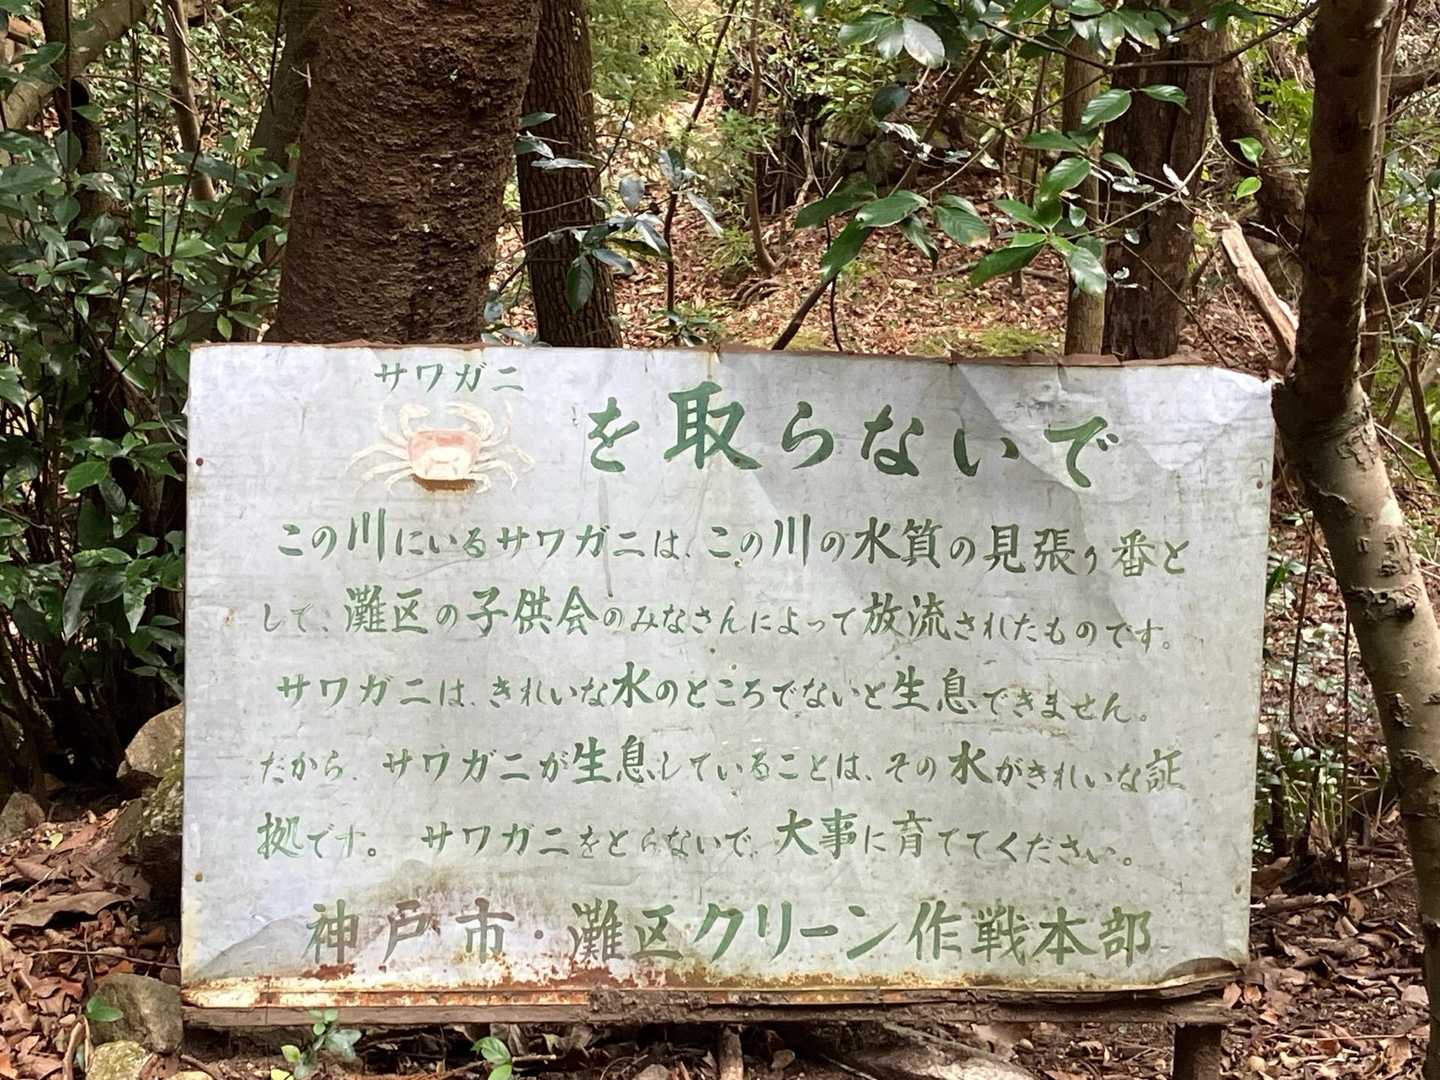 サワガニ
を取らないで
この川にいるサワガニは、この川の水質の見張り番と
して、灘区の子供会のみなさんによって放流されたものです。
サワガニは、きれいな水のところでないと生息できません。
だから、サワガニが生息していることは、その水がきれいな証
拠です。 サワガニをとらないで、大事に育ててください。
神戸市・灘区クリーン作戦本部